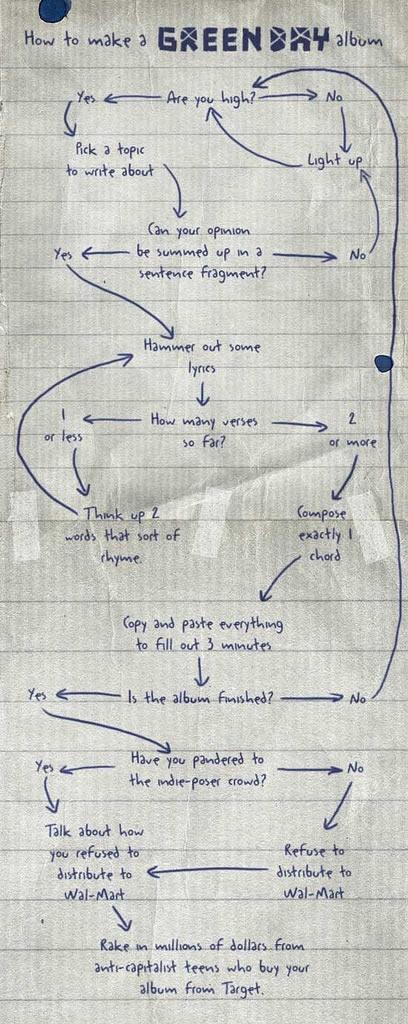 How to make a GREEN DAY album
Yes Are you high? No
Pick a topic
to write about
Light up
Can your opinion
Yes be summed up in a No
sentence fragment?
Hammer out some
lyrics
1 How many verses 2
or less so far? or more
Think up 2
words that sort of
rhyme.
Compose
exactly 1
chord
Copy and paste everything
to fill out 3 minutes
Yes Is the album finished? No
Have you pandered to
Yes the indie-poser crowd? No
Talk about how
you refused to
distribute to
Wal-Mart
Refuse to
distribute to
Wal-Mart
Rake in millions of dollars from
anti-capitalist teens who buy your
album from Target.